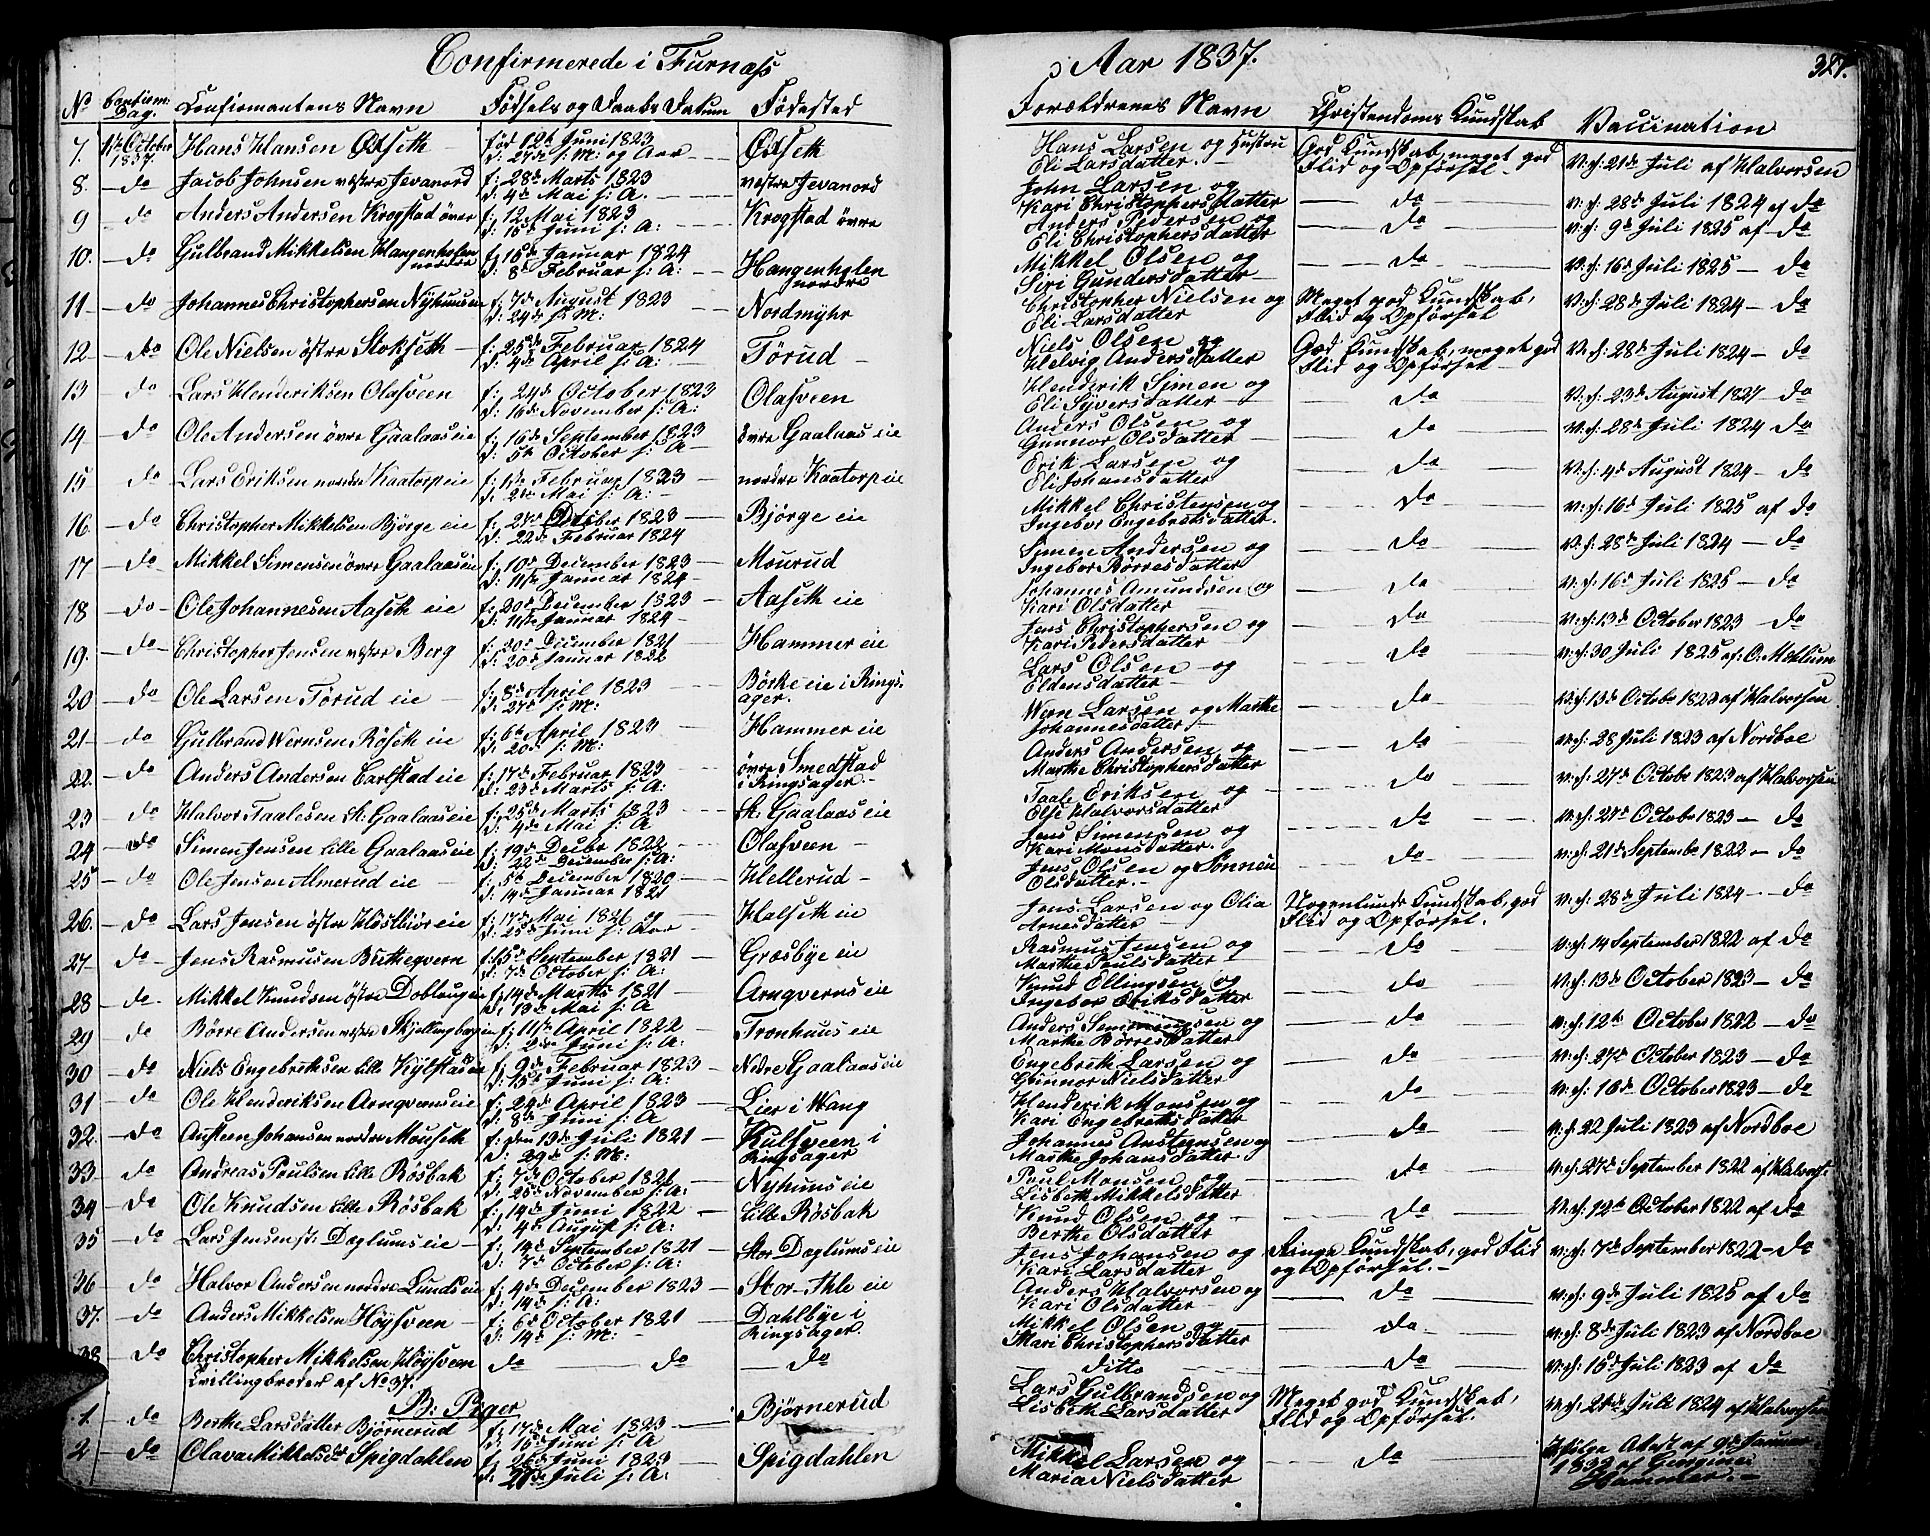 Confirmerede i Furnæss
Aar 1837.
387.
No Confirm: Dag. Confirmantens Navn Fødsels og Daabs Datum Fødested Forældrenes Navn Christendoms Kundskab Vaccination
7. October 1837. Hans Hansen Ødseth fød 12te Juni 1823 d: 27de s: M: og Aar Ødseth Hans Larsen og Hustru Eli Larsdatter. God Kundskab, meget god Flid og Opførsel. v: d: 21de Juli af Halvorsen
8. do Jacob Johnsen vestre Jevanord f: 28de Marts 1823 d: 4de Mai s: A. vestre Jevanord John Larsen og Kari Christophersdatter do v: d: 28de Juli 1824 af do
9 do Anders Andersen Krogstad övre f: 12 Mai 1823 d: 15de Juni s: A: Krogstad övre Anders Pedersen og Eli Christophersdatter do v: d: 9de Juli 1825 af do
10. do Gulbrand Mikkelsen Hangenholen nordre f: 15de Januar 1824 d: 8de Februar s: A: Hangenholen nordre Mikkel Olsen og Siri Gundersdatter do v: d: 16de Juli 1825 do
11 do Johannes Christophersen Nyhuus f: 7de August 1823 d: 24de s: M: Nordmyhr Christopher Nielsen og Eli Larsdatter Meget god Kundskab, Flid og Opførsel v: d: 28de Juli 1824 do
12 do Ole Nielsen östre Stokseth f: 25de Februar 1824 d: 4de April s: A: Törud Niels Olsen og Helvig Andersdatter God Kundskab, meget god Flid og Opførsel v: d: 28de Juli 1824 do
13 do Lars Henderiksen Olasveen f: 24de October 1823 d: 16de November s: A: Olasveen Henderik Simen og Eli Syversdatter do v: d: 23de August 1827 do
14 do Ole Andersen övre Gaalaas eie f: 16de September 1823 d: 5te October s: A övre Gaalaas eie Anders Olsen og Gunnor Olsdatter do v: d: 28de Juli 1824 do
15 do Lars Eriksen nordre Kaatorp eie f: 1ste Februar 1823 d: 2den Mai s: A: nordre Kaatorp eie Erik Larsen og Eli Johansdatter do v: d: 4de August 1824 do
16. do Christopher Mikkelsen Björge eie f: 27de October 1823 d: 22de Februar 1824 Björge eie Mikkel Christensen og Ingebor Engebretsdatter. do v: d: 16de Juli 1825 af do
17 do Mikkel Simensen övre Gaalaas eie f: 10de December 1823 d: 11te Januar 1824 Mourud Simen Andersen og Ingebor Börresdatter do v: d: 28de Juli 1824 do
18 do Ole Johannesen Aaseth eie f: 20de December 1823 d: 11te Januar 1824 Aaseth eie Johannes Amundsen og Kari Olsdatter do v: d: 16de Juli 1825 do
19. do Christopher Jensen vestre Berg f: 20de December 1821 d: 20de Januar 1822 Hammer eie Jens Christophersen og Kari Pedersdatter do v: d: 13de October 1823 do
20 do Ole Larsen Törud eie f: 8de April 1823 d: 27de s: M: Börke eie i Ringsager. Lars Olsen og Eldensdatter do v: d: 30 Juli 1825 af: O: Mæhlum
21 do Gulbrand Wernsen Röseth eie f: 6te April 1823 d: 20de s: M: Hammer eie Wern Larsen og Marthe Johannesdatter do v: d: 13de October 1823 af Halvorsen
22. do Anders Andersen Carlstad eie f: 17de Februar 1823 d: 23de Marts s: A: övre Smedstad i Ringsager. Anders Andersen og Marthe Christophersdatter do v: d: 28 Juli 1823 af Nordboe
23 do Halvor Taalesen st: Gaalaas eie f: 25de Marts 1823 d: 4de Mai s: A st: Gaalaas eie Taale Eriksen og Else Halvorsdatter do v: d: 27de October 1823 af Halvorsen
24 do Simen Jensen Lille Gaalaas eie f: 19de Decbr 1822 d: 22de December s: A: Olasveen Jens Simensen og Kari Monsdatter. do v: d: 27de October 1823 do
25 do Ole Jensen Almerud eie f: 5te December 1820 d: 14de Januar 1821 Hellerud Jens Olsen og Sönnau Olsdatter. do v: d: 21de September 1822 do
26. do Lars Jensen östre Hostbiör eie f: 17de Mai 1821 og d: 25de Juni s: Aar Halseth eie Jens Larsen og Olia Arnesdatter Nogenlunde Kundskab, god Flid og Opførsel. v: d: 28de Juli 1824 do
27 do Jens Rasmusen Berthegvern f: 5te September 1821 d: 7de October s: A: Græsbye eie Rasmus Jensen og Marthe Poulsdatter do v: d: 14 September 1822 af do
28 do Mikkel Knudsen östre Doblaug eie f: 14de Martts 1821 d: 13de Mai s: A Arnqvernseie Knud Ellingsen og Ingebor Eriksdatter do v: d: 13de October 1823 do
29 do Börre Andersen vestre Skjellingbergeie f: 11te April 1822 d: 2den Juni s: A: Tronhuuseie Anders og Marthe Börresdatter do v: d: 12te October 1822 do
30 do Niels Engebretsen Lille f: 9de Februar 1823 d: 15de Juni s: A: Nedre Gaalaas eie Engebreth Larsen og Gunnor Nielsdatter do v: d: 27de October 1823 do
31 do Ole Henderiksen Arnqverns eie f: 24de April 1823 d: 8de Juni s: A: Lier i Wang Henderik Monsen og Kari Engebretsdatter do v: d: 16de October 1823 do
32. do Austeen Johansen nordre Mouseth f: den 13de Juli 1821 d: 29de s: M: Kulsveen i Ringsager Johannes Anstensen og Marthe Johansdatter do v: d: 22 Juli 1823 af Nordboe
33 do Andreas Poulsen Lille Rösbak f: 7de October 1821 d: 25de November s: A: Nyhuus eie Poul Monsen og Lisbeth Mikkelsdatter do v: d: 27de September 1822 af Halvors:
34 do Ole Knudsen Lille Rösbak f: 14de Juni 1822 d: 4de August s: A: Lille Rösbak Knud Olsen og Berthe Olsdatter do v: d: 12te October 1822 af do
35 do Lars Jensen st: Deglums eie f: 14de September 1821 d: 7de October s: A: Stor Deglums eie Jens Johansen og Kari Larsdatter Ringe Kundskab, god Flid og Opførsel. v: d: 7de September 1822 do
36 do Halvor Andersen nordre Lunds eie f: 4de December 1823 d: 14de s: A: Stor-Ahle eie Anders Halvorsen og Kari Olsdatter do v: d: 9de Juli 1825 af do
37. do Anders Mikkelsen Höysveen f: 6te October 1821 d: 14de s: M: Dahlbye i Ringsager. Mikkel Olsen og Mari Christophersdatter do v: d: 8de Juli 1823 af Nordboe
38 do Christopher Mikkelsen Höysveen Tvillingbroder af No 37. do do do ditto do v: d: 15de Juli 1823 af do
B: Piger
1. do Berthe Larsdatter Björnerud f: 17de Mai 1823 d: 16de Juni s: A Björnerud Lars Gulbrandsen og Lisbeth Larsdatter Meget god Kundskab, Flid og Opførsel. v: d: 21de Juli 1824 af Halvorsen
2 do Olava Mikkelsdr Spigdahlen f: 26de Juni 1823 d: 21de Juli s: A: Spigdahlen Mikkel Larsen og Maria Nielsdatter do Ifölge Atest af 9de Januar af Hammer.